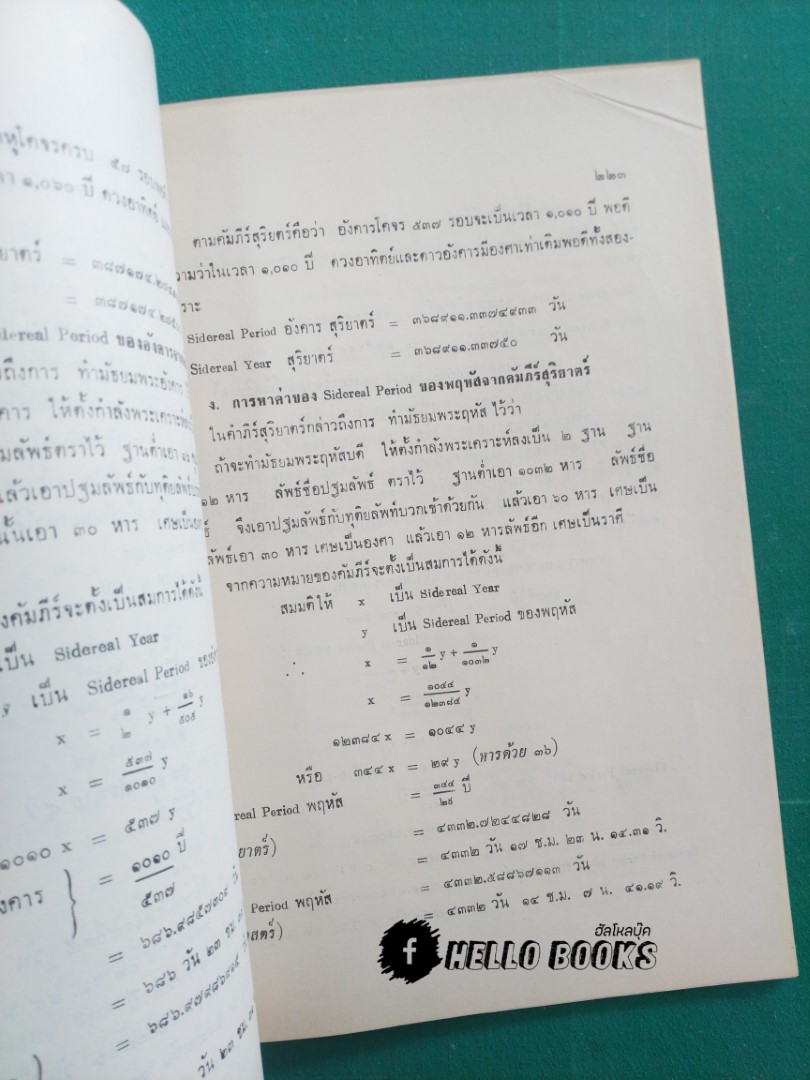 หูโคจรครบ ๕๗ รอบ
ลา ๑,๐๖๐ ปี ดวงอาทิตย์
ยาตร์ = ๓๘๗๑๗๔.๒
= ๓๘๗๑๗๔.๒
idereal Period ของอังคาร
ถึงการ ทำมัธยมพระอังคาร
คาร ให้ตั้งกำลังพระเคราะห์
มลัพธ์ตราไว้ ฐานต่ำเอา
แล้วเอาปฐมลัพธ์กับทุติยลัพธ์
นั้นเอา ๓๐ หาร เศษเป็น
งคัมภีร์จะตั้งเป็นสมการได้ดังนี้
เป็น Sidereal Year
y เป็น Sidereal Period ของ
x = ๑/๒ y + ๑๖/๕๐๕ y
x = ๕๓๗/๑๐๑๐ y
๑๐๑๐ x = ๕๓๗ y
งคาร } = ๑๐๑๐/๕๓๗ ปี
= ๖๘๖.๙๘๕๗๓๐๙ วั
= ๖๘๖ วัน ๒๓ ชม.
= ๖๘๖.๙๗๙๘
วัน ๒๓ ชม.
๒๒๓
ตามคัมภีร์สุริยาตร์คือว่า อังคารโคจร ๕๓๗ รอบจะเป็นเวลา ๑,๐๑๐ ปี พอดี
ความว่าในเวลา ๑,๐๑๐ ปี ดวงอาทิตย์และดาวอังคารมีองศาเท่าเดิมพอดีทั้งสอง-
ราะ
Sidereal Period อังคาร สุริยาตร์ = ๓๖๘๙๑๑.๓๓๗๔๙๓๓ วัน
Sidereal Year สุริยาตร์ = ๓๖๘๙๑๑.๓๓๗๕๐ วัน
ง. การหาค่าของ Sidereal Period ของพฤหัสจากคัมภีร์สุริยาตร์
ในคำภีร์สุริยาตร์กล่าวถึงการ ทำมัธยมพระฤหัส ไว้ว่า
ถ้าจะทำมัธยมพระฤหัสบดี ให้ตั้งกำลังพระเคราะห์ลงเป็น ๒ ฐาน ฐาน
๑๒ หาร ลัพธ์ชื่อปฐมลัพธ์ ตราไว้ ฐานต่ำเอา ๑๐๓๒ หาร ลัพธ์ชื่อ
ธ์ จึงเอาปฐมลัพธ์กับทุติยลัพท์บวกเข้าด้วยกัน แล้วเอา ๖๐ หาร เศษเป็น
ลัพธ์เอา ๓๐ หาร เศษเป็นองศา แล้วเอา ๑๒ หารลัพธ์อีก เศษเป็นราศี
จากความหมายของคัมภีร์จะตั้งเป็นสมการได้ดังนี้
สมมติให้ x เป็น Sidereal Year
y เป็น Sidereal Period ของพฤหัส
∴ x = ๑/๑๒ y + ๑/๑๐๓๒ y
x = ๑๐๔๔/๑๒๓๘๔ y
๑๒๓๘๔ x = ๑๐๔๔ y
หรือ ๓๔๔ x = ๒๙ y (หารด้วย ๓๖)
ereal Period พฤหัส = ๓๔๔/๒๙ ปี
= ๔๓๓๒.๗๒๔๔๘๒๘ วัน
ยาตร์) = ๔๓๓๒ วัน ๑๗ ช.ม. ๒๓ น. ๑๔.๓๑ วิ.
Period พฤหัส = ๔๓๓๒.๕๘๘๖๗๑๑๓ วัน
สตร์) = ๔๓๓๒ วัน ๑๔ ช.ม. ๗ น. ๔๑.๑๙ วิ.
ฮัลโหลบุ๊ค
f HELLO BOOKS